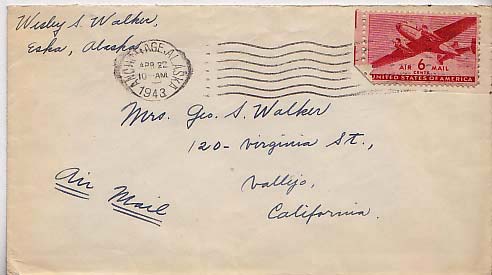 Wesley S. Walker,
Eska, Alaska
ANCHORAGE, ALASKA
APR 22
10-AM
1943
AIR 6 MAIL
CENTS
UNITED STATES OF AMERICA
Mrs. Geo. S. Walker
120- Virginia St.,
Vallejo,
California.
Air Mail